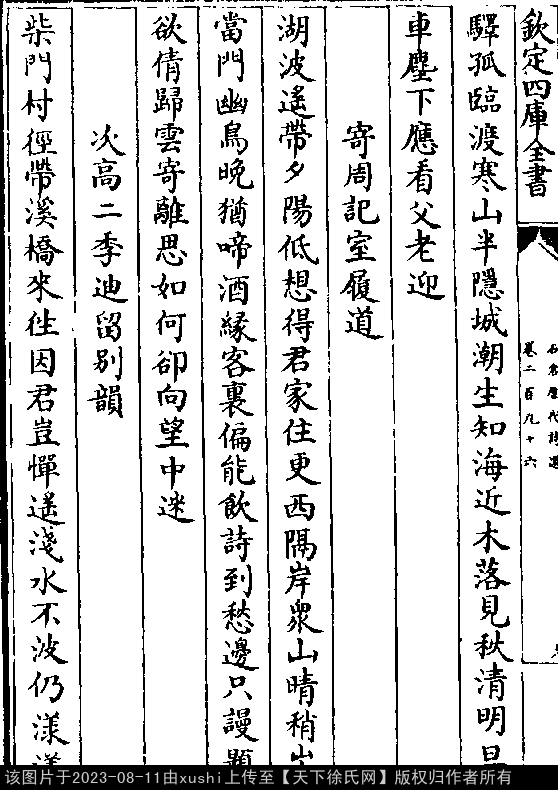 欽定四庫全書
卷二百九十六
驛孤臨渡寒山半隱城潮生知海近木落見秋清明旦
車塵下應看父老迎
寄周記室履道
湖波遙帶夕陽低想得君家住更西隔岸衆山晴稍出
當門幽鳥晚猶啼酒緣客裏偏能飲詩到愁邊只謾題
欲倩歸雲寄離思如何卻向望中迷
次高二季迪留別韻
柴門村徑帶溪橋來徃因君豈憚遙淺水不波仍漾
该图片于2023-08-11由xushi上传至【天下徐氏网】版权归作者所有